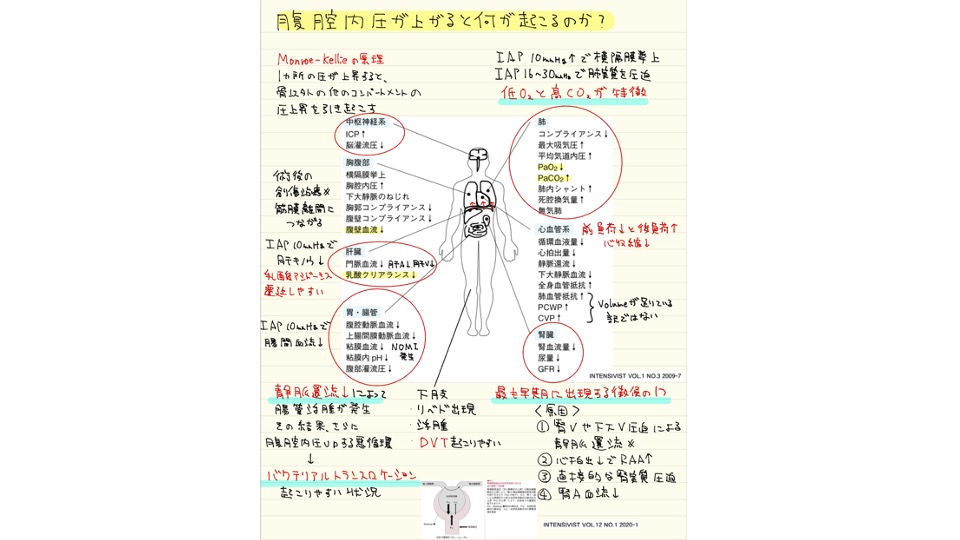 腹腔内圧が上がると何が起こるのか？
Monroe-Kellieの原理
1カ所の圧が上昇すると、
骨以外の他のコンパートメントの
圧上昇を引き起こす
IAP 10mmHg↑で横隔膜挙上
IAP 16~30mmHgで肺実質を圧迫
低O₂と高CO₂が特徴
中枢神経系
ICP↑
脳灌流圧↓
胸腹部
横隔膜挙上
胸腔内圧↑
下大静脈のねじれ
胸郭コンプライアンス↓
腹壁コンプライアンス↓
腹壁血流↓
術後の
創傷治癒×
筋膜離開に
つながる
肝臓
門脈血流↓ 肝A↓肝V↓
乳酸クリアランス↓
IAP 10mmHgで
肝キノウ↓
乳酸アシドーシス
遷延しやすい
胃・腸管
腹腔動脈血流↓
上腸間膜動脈血流↓
粘膜血流↓ NOMI
粘膜内pH↓ 発生
腹部灌流圧↓
IAP 10mmHgで
腸間血流↓
肺
コンプライアンス↓
最大吸気圧↑
平均気道内圧↑
PaO₂↓
PaCO₂↑
肺内シャント↑
死腔換気量↑
無気肺
心血管系 前負荷↓と後負荷↑
循環血液量↓ 心収縮↓
心拍出量↓
静脈還流↓
下大静脈血流↓
全身血管抵抗↑
肺血管抵抗↑
PCWP↑
CVP↑
Volumeが足りている
訳ではない
腎臓
腎血流量↓
尿量↓
GFR↓
INTENSIVIST VOL.1 NO.3 2009-7
静脈還流↓によって
腸管浮腫が発生
その結果、さらに
腹腔内圧upする悪循環
↓
バクテリアルトランスロケーション
起こりやすい状況
下肢
・リベド出現
・浮腫
・DVT起こりやすい
最も早期に出現する徴候の1つ
〈原因〉
① 腎Vや下大V圧迫による
静脈還流×
② 心拍出↓でRAA↑
③ 直接的な腎実質圧迫
④ 腎A血流↓
INTENSIVIST VOL.12 NO.1 2020-1